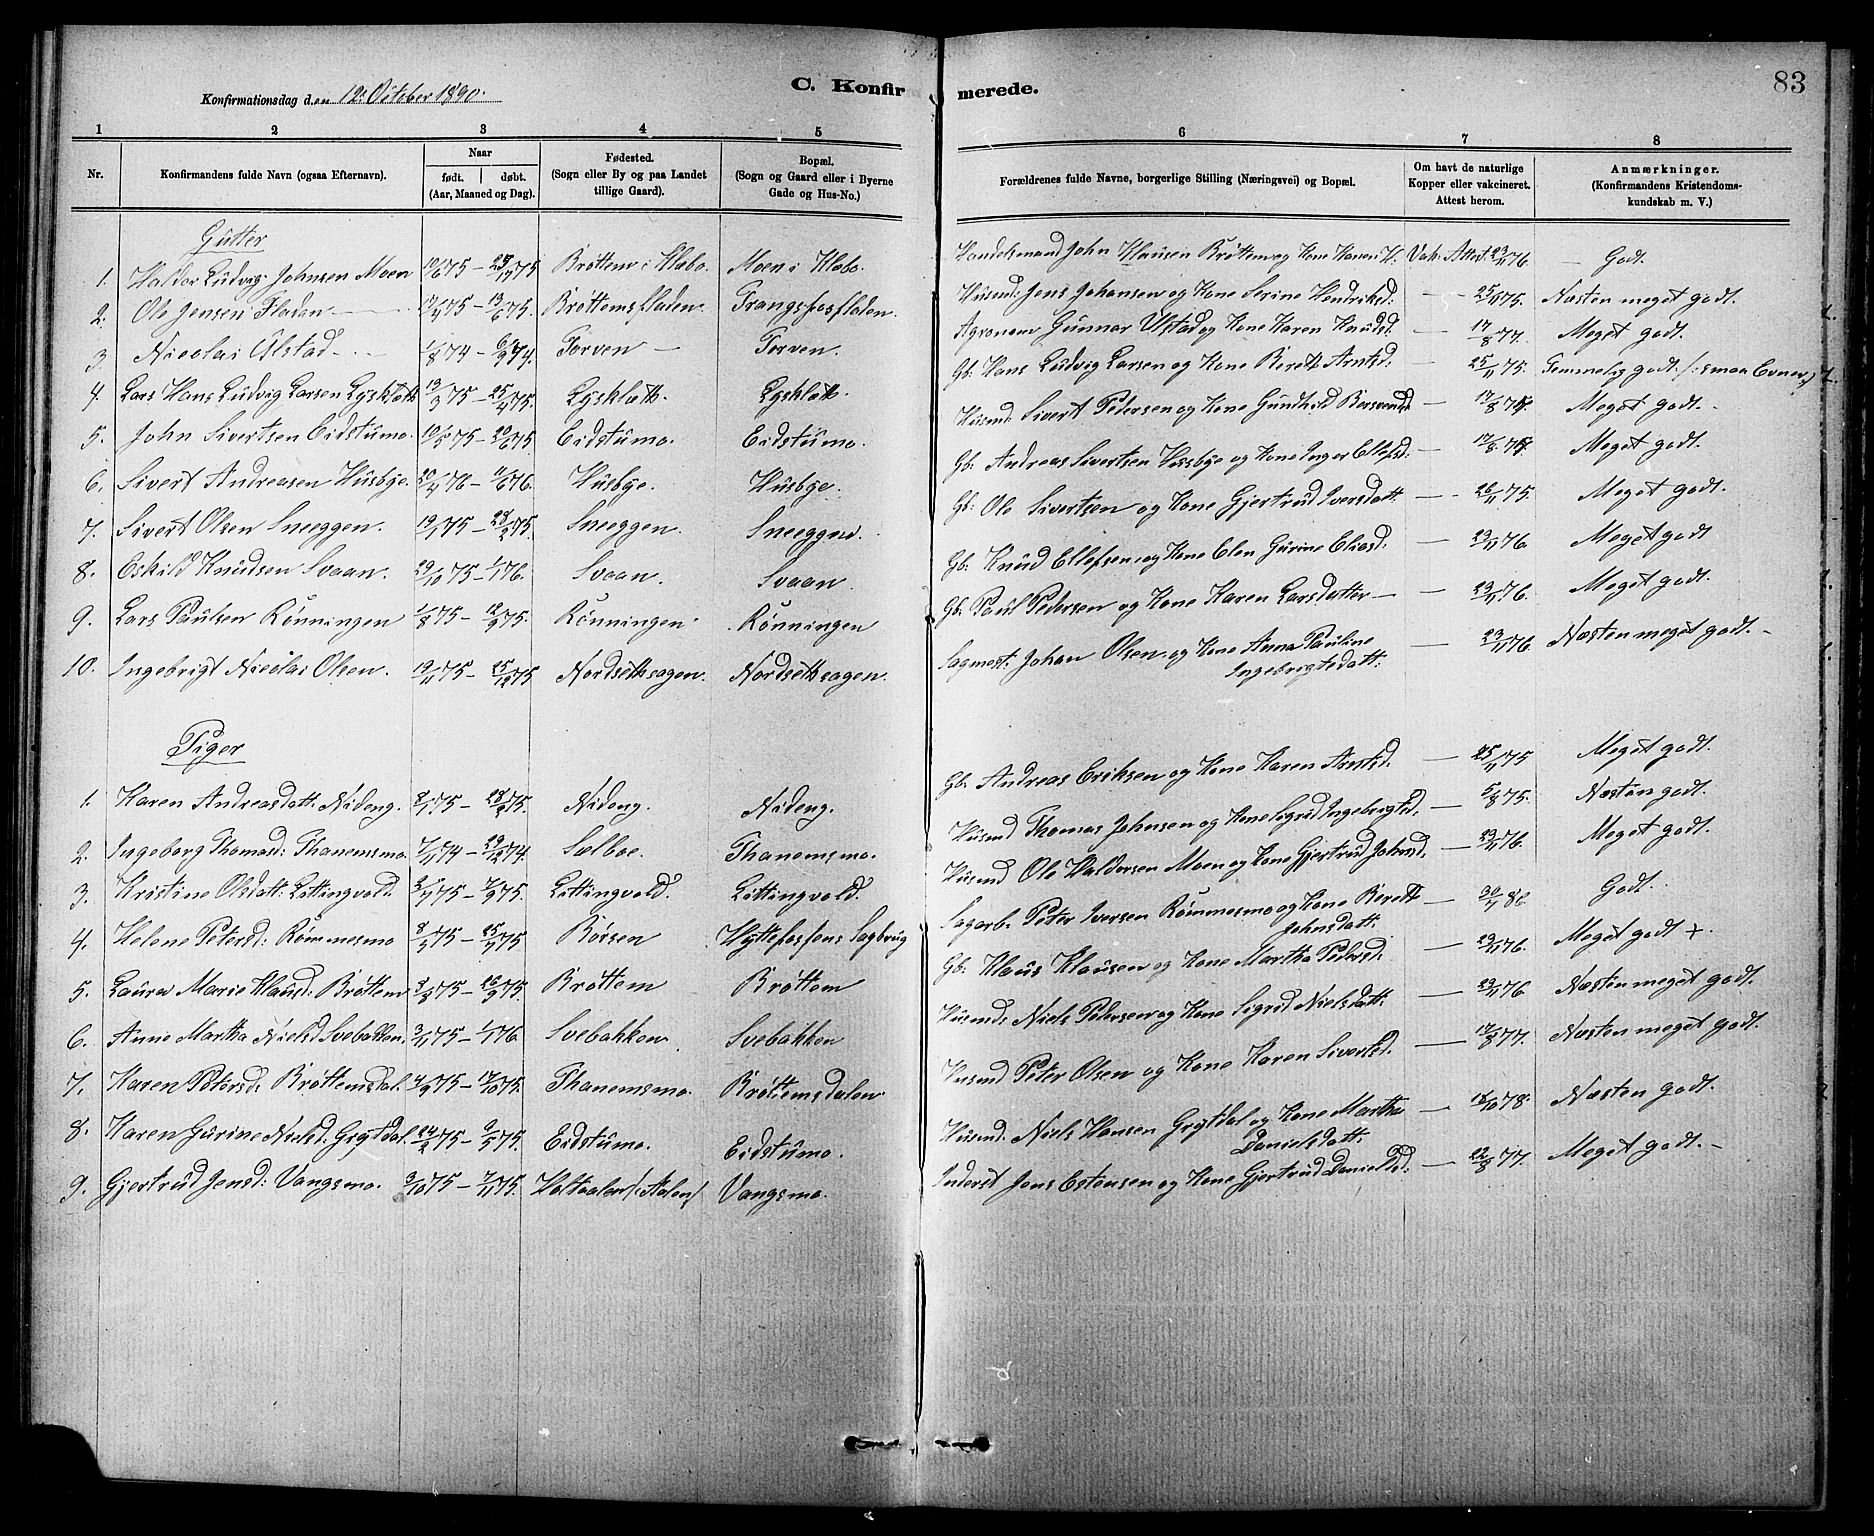 83
Konfirmationsdag den 12. October 1890.
C. Konfirmerede.
1 2 3 4 5 6 7 8
Nr.
Konfirmandens fulde Navn (ogsaa Efternavn).
Naar
født. døbt.
(Aar, Maaned og Dag).
Fødested.
(Sogn eller By og paa Landet
tillige Gaard).
Bopæl.
(Sogn og Gaard eller i Byerne
Gade og Hus-No.)
Forældrenes fulde Navne, borgerlige Stilling (Næringsvei) og Bopæl.
Om havt de naturlige
Kopper eller vakcineret.
Attest herom.
Anmærkninger.
(Konfirmandens Kristendoms-
kundskab m. V.)
Gutter
1. Haldor Ludvig Johnsen Moen Brøttem i Klæbo. Moen i Klæbo. Handelsmand John Klausen Brøttem og Kone Vak. Attest 23/11 76 – Godt.
2. Ole Jensen Fladen 75 – 13/6 75. Brøttemsfladen. Trangfosfladen. Husmd: Jens Johansen og Kone Serine Hendriksd: – 75. Næsten meget godt.
3. Nicolai Ulstad 1/8 74 – 6/9 74. Torven – Torven. Agronom Gunnar Ulstad og Kone Karen Knudsd. – 17/8 77. Meget godt.
4. Lars Hans Ludvig Larsen Lysklæth 13/3 75 – 25/4 75. Lysklæth. Lysklæth. Gb: Hans Ludvig Larsen og Kone Berett Arntsd: – 25/11 75. Temmelig godt /: smaa Evner :/
5. John Sivertsen Eidstumo. 10/5 75 – 20/6 75. Eidstumo. Eidstumo. Husmd. Sivert Pedersen og Kone Gunhild – 17/8 77. Meget godt.
6. Sivert Andreasen Husbye. 20/4 76 – 11/6 76. Husbye. Husbye. Gb: Andreas Sivertsen Husbye og Kone Inger Ellefsd: – 17/8 77. Meget godt.
7. Sivert Olsen Sneeggen. 19/1 75 – 28/2 75. Sneeggen. Sneeggen. Gb: Ole Sivertsen og Kone Gjertrud Iversdatt. – 75. Meget godt.
8. Eskild Knudsen Svaan. 29/10 75 – 1/1 76. Svaan. Svaan. Gb: Knud Ellefsen og Kone Elen Gurine Eliasd: – 23/11 76. Meget godt
9. Lars Paulsen Rønningen 1/8 75 – 12/9 75. Rønningen. Rønningen Gb: Paul Pedersen og Kone Karen Larsdatter – 23/11 76. Meget godt.
10. Ingebrigt Nicolai Olsen. 19/11 75 – 25/12 75 Nordsethsagen. Nordsethsagen. Sagmest: Johan Olsen og Kone Anna Pauline – 23/11 76. Næsten meget godt. –
Ingebrigtsdatt:
Piger
1. Karen Andreasdatt. Nideng. 8/1 75 – 28/2 75. Nideng. Nideng. Gb: Andreas Eriksen og Kone Karen Arntsd. – 25/11 75 Meget godt.
2. Ingeborg Thomasd: Thanemsmo. 7/11 74 – 29/12 74. Sælboe. Thanemsmo. Husmd Thomas Johnsen og Kone Sigrid Ingebrigtsd. – 5/8 75. Næsten godt.
3. Kristine Olsdatt: Littingvold 75 – 7/9 75. Littingvold. Littingvold. Husmd Ole Haldorsen Moen og Kone Gjertrud Johnsd. – 23/11 76. Meget godt.
4. Helene Petersd: Rømmesmo 75 – 25/7 75 Børsen Hyttefossens Sagbrug Sagarb. Peter Iversen Rømmesmo og Kone Berett – 86 Godt.
Johnsdatt:
5. Laura Marie Klausd: Brøttem 75 – 26/9 75. Brøttem Brøttem Gb: Klaus Klausen og Kone Martha Pedersd. – 23/11 76. Meget godt +.
6. Anne Martha Nielsd Svebakken. 3/11 75 – 1/1 76. Svebakken Svebakken Husmd: Niels Pedersen og Kone Sigrid Nielsdatt: – 23/11 76. Næsten meget godt.
7. Karen Petersd: Brøttemsdal. 4/9 75 – 17/10 75. Thanemsmo. Brøttemsdalen Husmd Peter Olsen og Kone Karen Sivertsd. – 17/8 77. Næsten meget godt.
8. Karen Gurine Nielsd. Grytdal. 24/2 75 – 75. Eidstumo. Eidstumo. Husmd. Niels Hansen Grytdal og Kone Martha – 18/10 78. Næsten godt.
Danielsdatt.
9. Gjertrud Jensd: Vangsmo. 3/10 75 – 7/11 75. Holtaalen /: Aalen :/ Vangsmo. Inderst Jens Estensen og Kone Gjertrud Danielsd: – 22/8 77. Meget godt. –